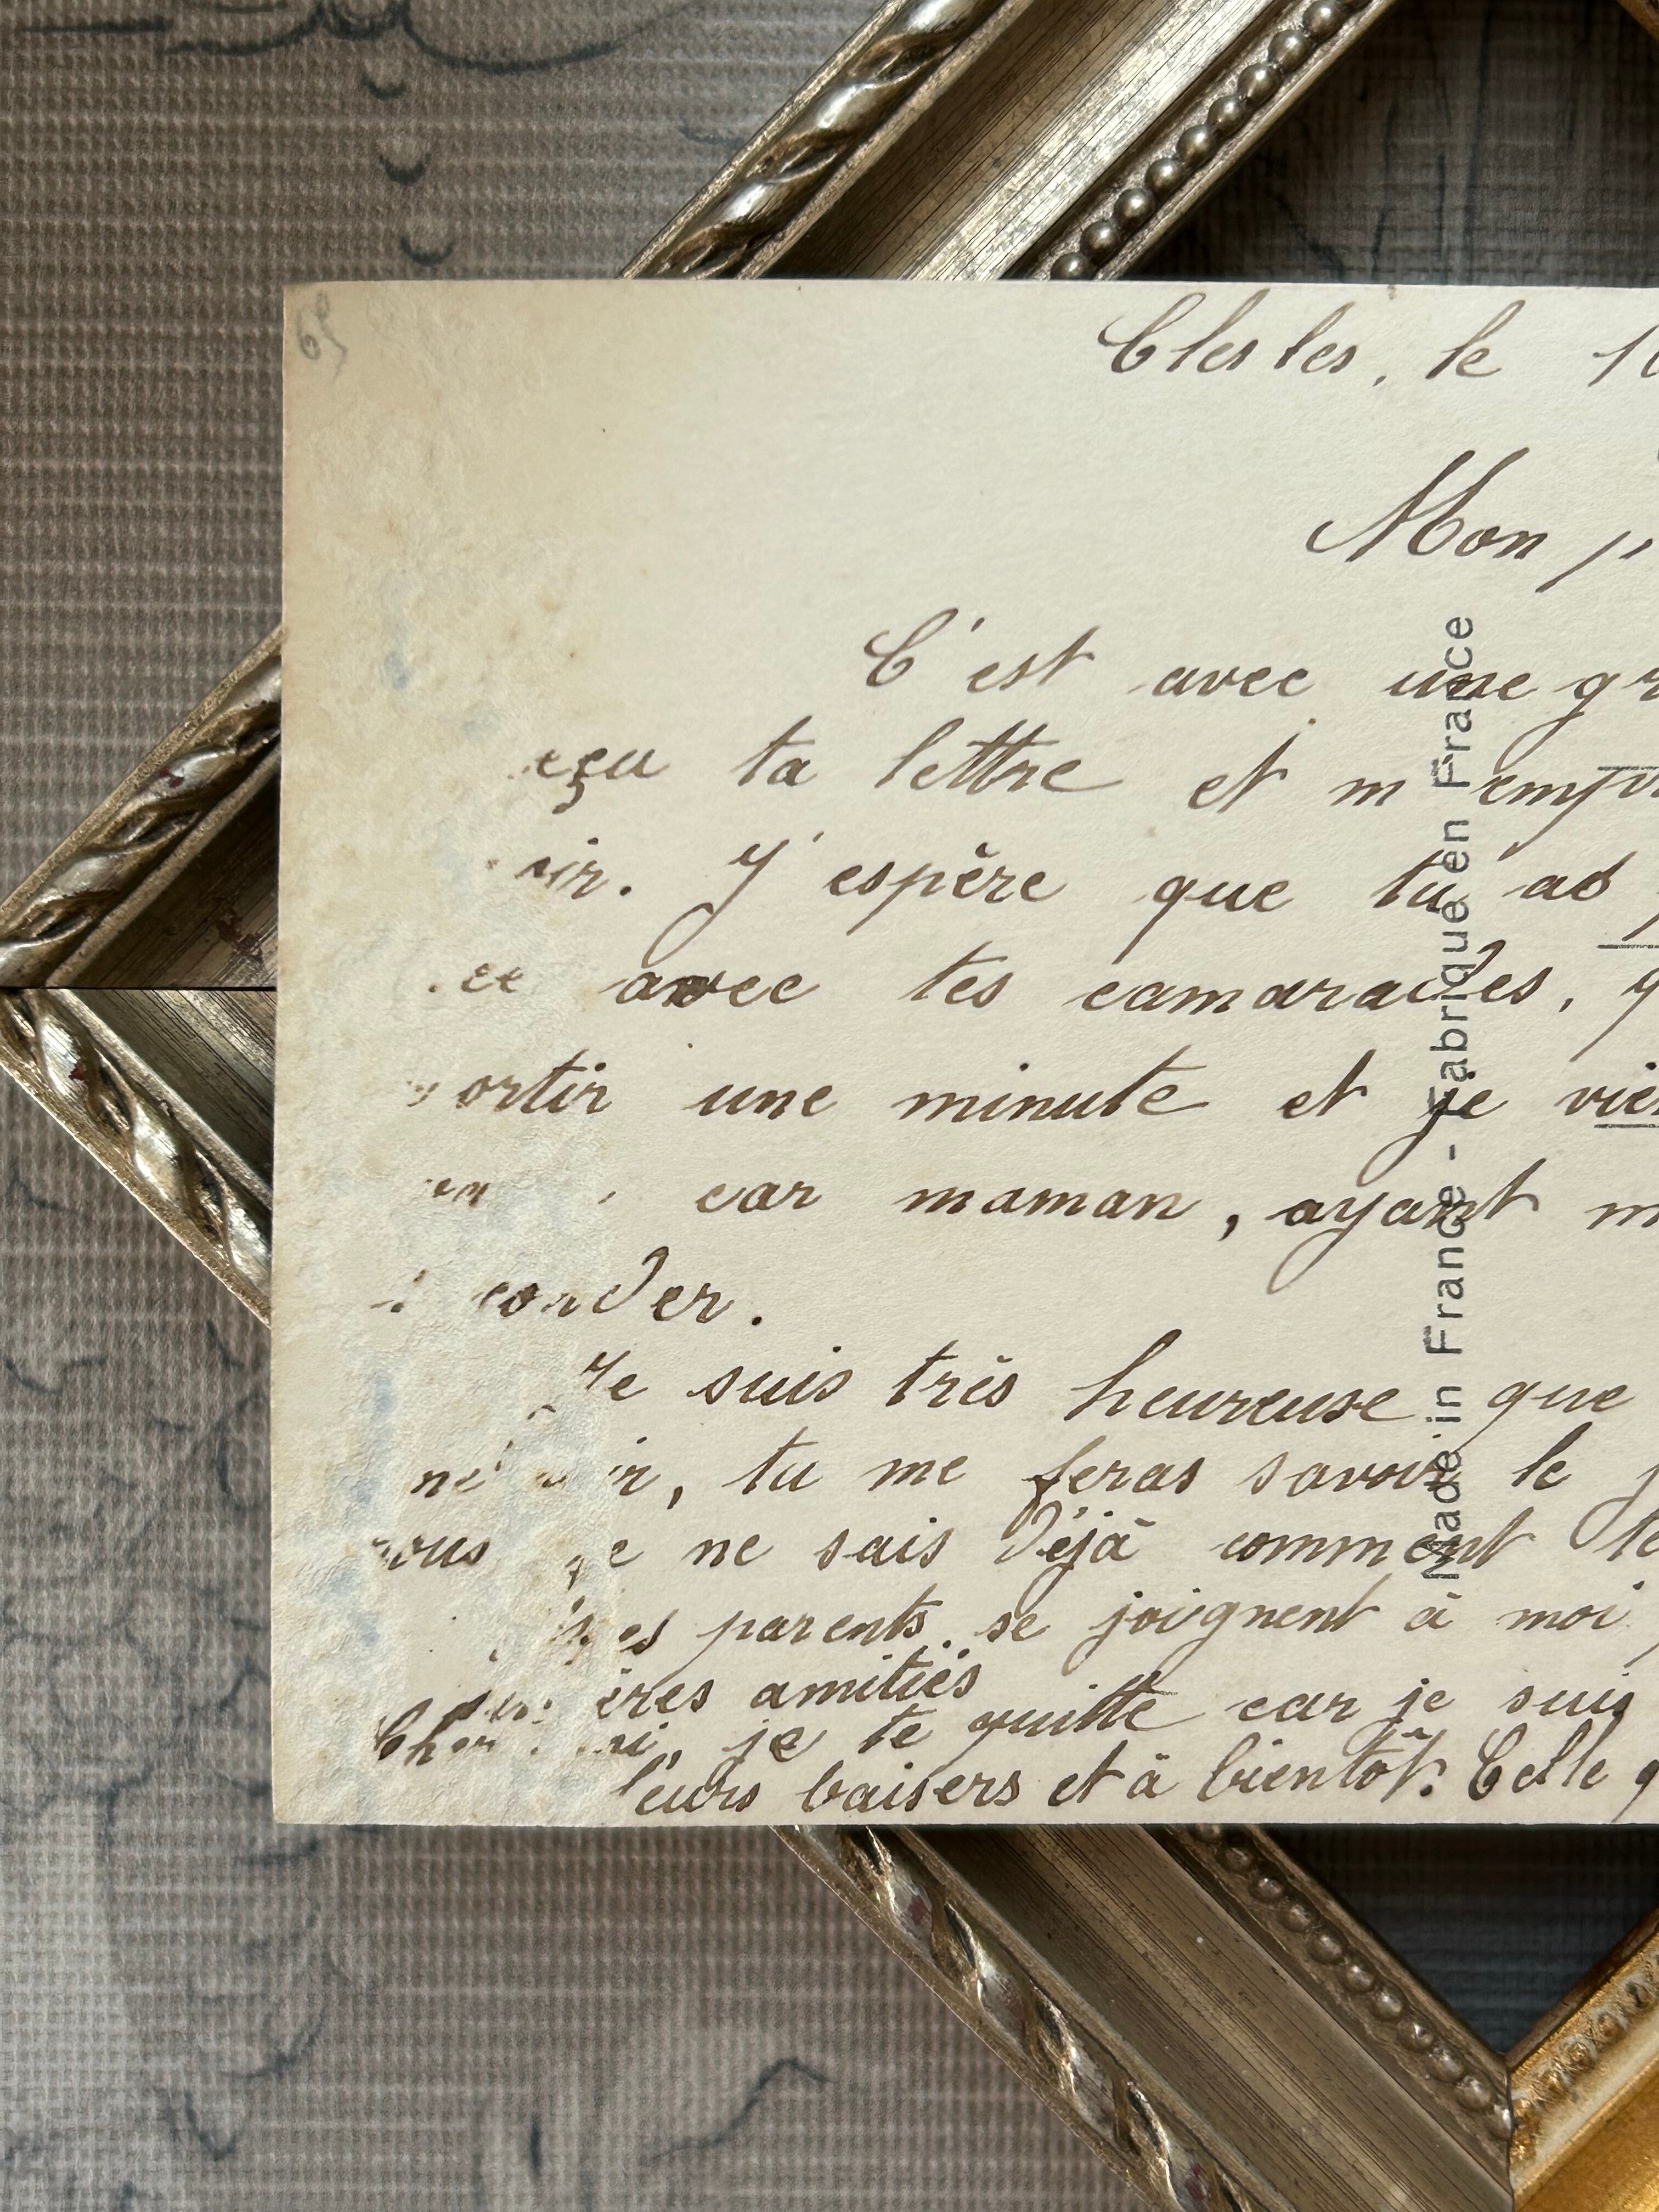 Clesles, le 1
Mon
C'est avec une gr
eçu ta lettre et m'empr
oir. J'espère que tu as
avec tes camarades, j
sortir une minute et je vien
car maman, ayant m
Je suis très heureuse que
tu me feras savoir le j
vous je ne sais déjà comment te
Mes parents se joignent à moi
ères amitiés
je te quitte car je suis
leurs baisers et à bientôt. Celle q
Made in France - Fabriqué en France